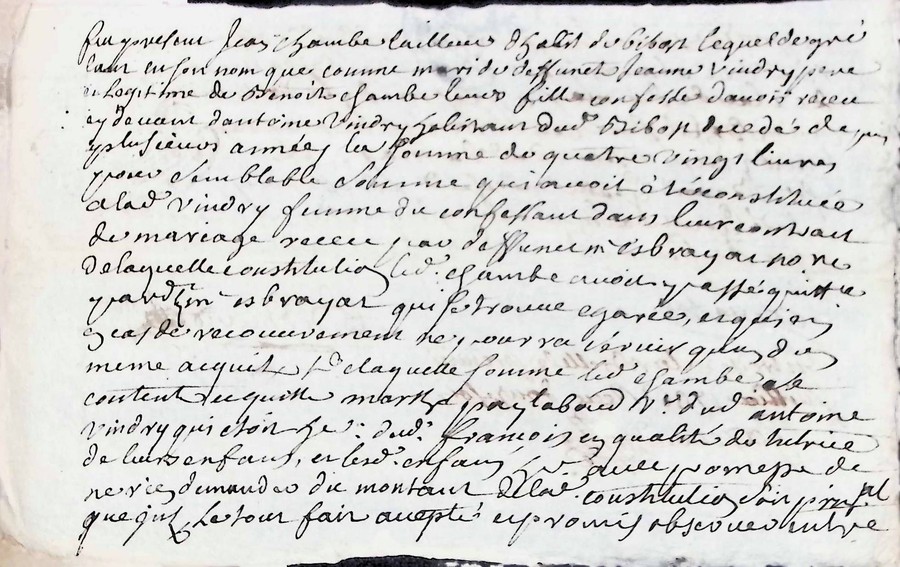 fut present Jean chambe tailleur d'habit du bibost lequel de gré
tant en son nom que comme mari de deffunct Jeanne vindry pere
et legitime de Benoit chambe leurs fille confesse d'avoir receu
cy devant d'antoine Vindry habitant dud. Bibost decedé depuis
plusieurs années la somme de quatre vingt livres
pour semblable somme qui avoit été constituée
a lad. vindry femme du confessant dans leur contrait
de mariage receu par deffunct me esbrayat nore
de laquelle constitution led. chambe avoit passé quittce
pard. me esbrayat qui se trouve egarée, et qui en
cas de recouvrement ne pourra servir que du
meme acquit de laquelle somme led. chambe se
content et quitte marthe laboud ve. dud. antoine
vindry qui etoit dud. françois en qualité de tutrice
de leurs enfans, et lesd. enfans avec promesse de
ne rien demander du montant de lad. constitution soit pinsal
que jnt. le tout fait accepté et promis observer entre